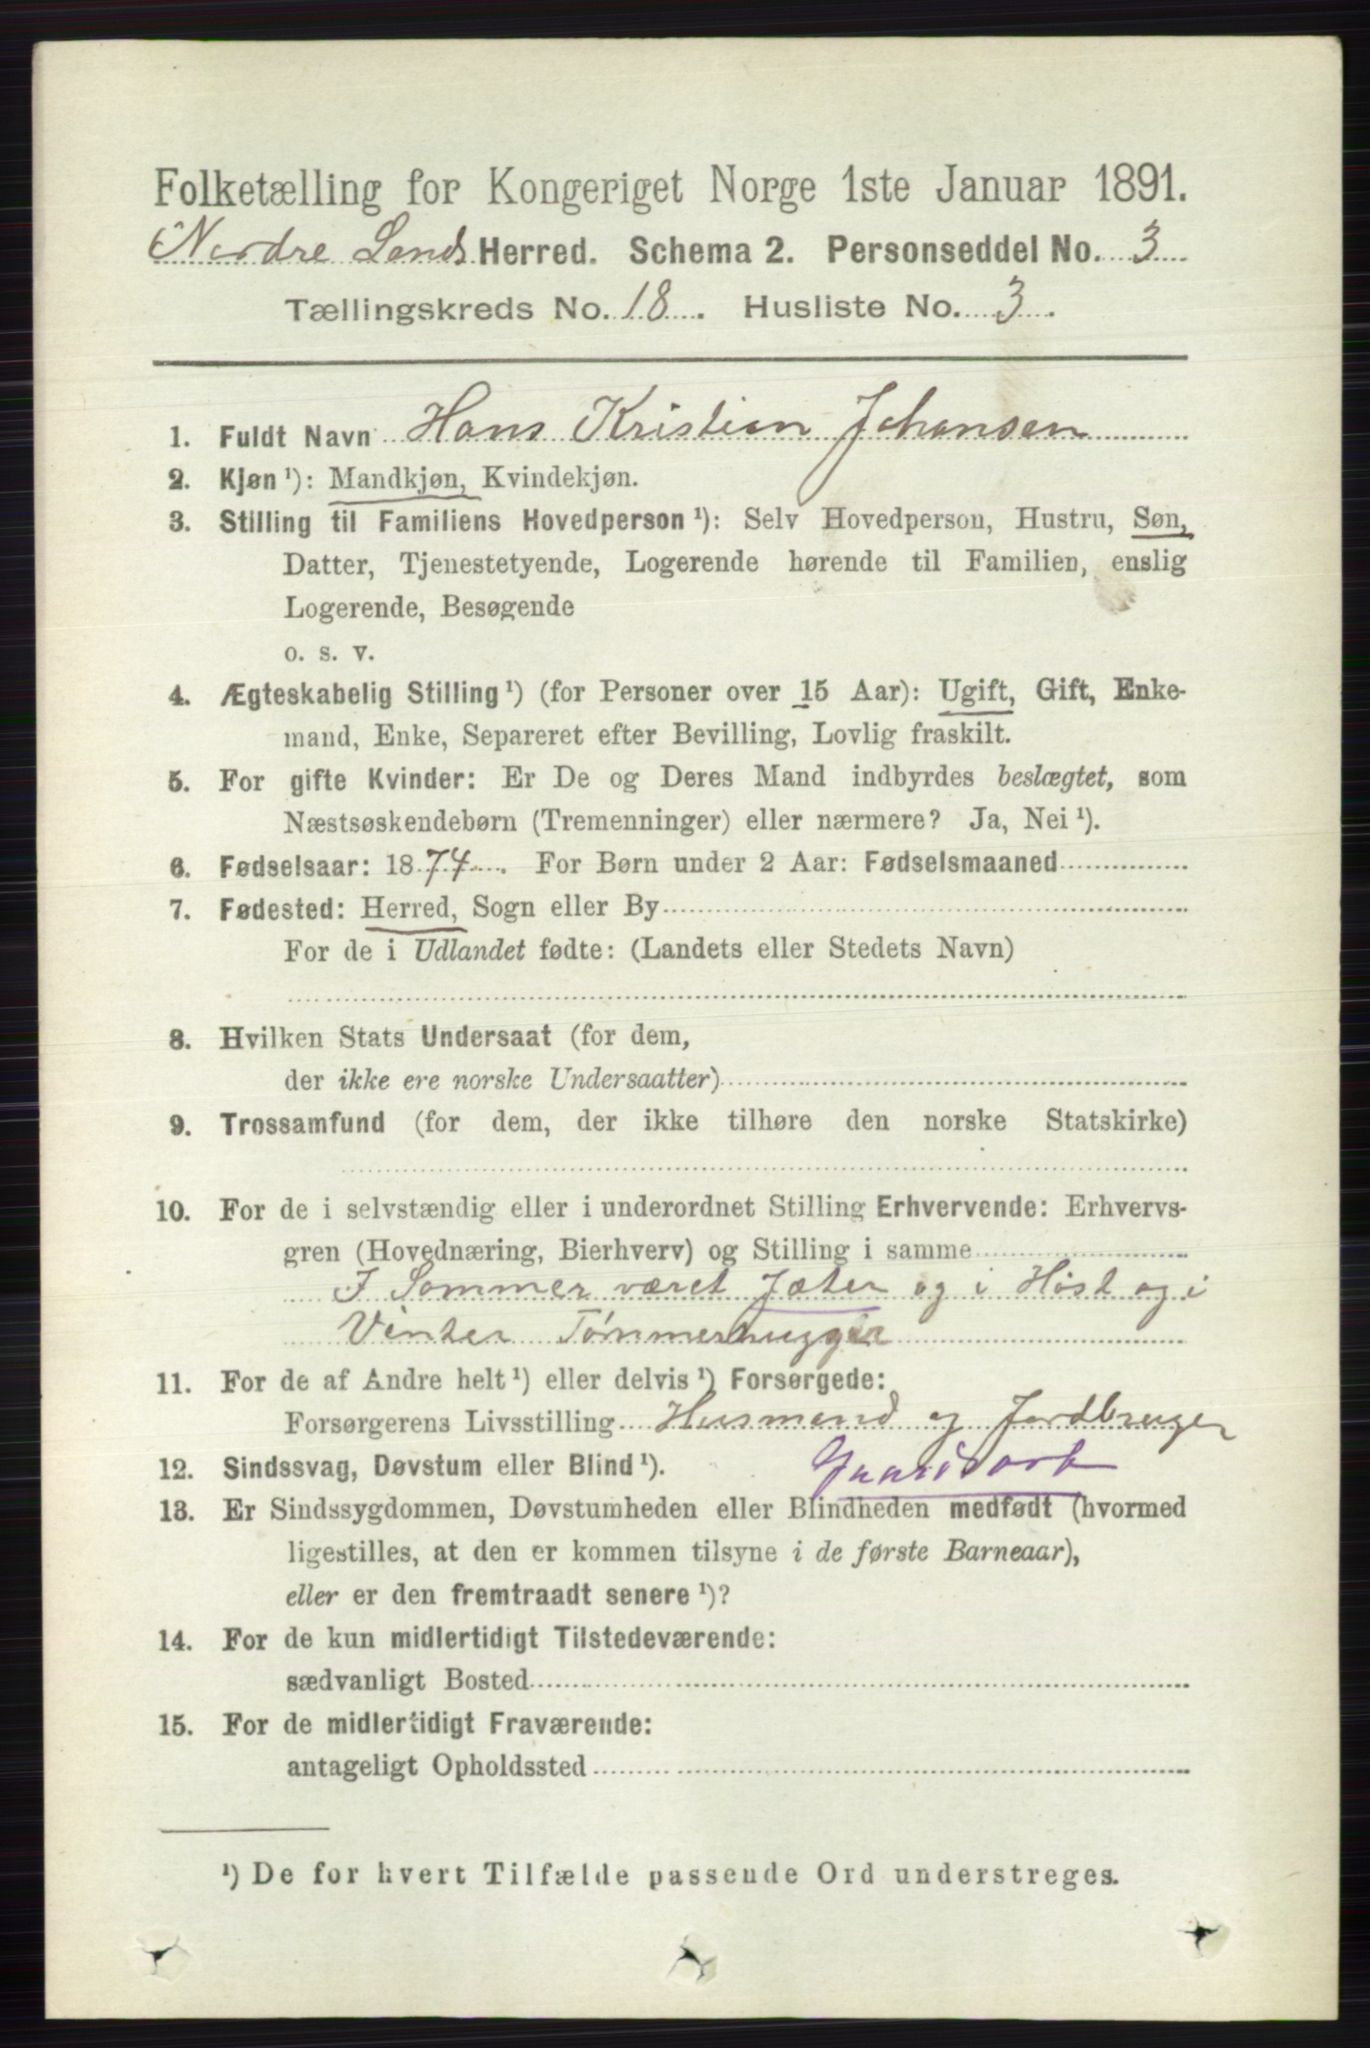 Folketælling for Kongeriget Norge 1ste Januar 1891.
Nordre Lands Herred. Schema 2. Personseddel No. 3
Tællingskreds No. 18. Husliste No. 3.
1. Fuldt Navn Hans Kristian Johansen
2. Kjøn ¹): Mandkjøn, Kvindekjøn.
3. Stilling til Familiens Hovedperson ¹): Selv Hovedperson, Hustru, Søn,
Datter, Tjenestetyende, Logerende hørende til Familien, enslig
Logerende, Besøgende
o. s. v.
4. Ægteskabelig Stilling ¹) (for Personer over 15 Aar): Ugift, Gift, Enke-
mand, Enke, Separeret efter Bevilling, Lovlig fraskilt.
5. For gifte Kvinder: Er De og Deres Mand indbyrdes beslægtet, som
Næstsøskendebørn (Tremenninger) eller nærmere? Ja, Nei ¹).
6. Fødselsaar: 1874. For Børn under 2 Aar: Fødselsmaaned
7. Fødested: Herred, Sogn eller By
For de i Udlandet fødte: (Landets eller Stedets Navn)
8. Hvilken Stats Undersaat (for dem,
der ikke ere norske Undersaatter)
9. Trossamfund (for dem, der ikke tilhøre den norske Statskirke)
10. For de i selvstændig eller i underordnet Stilling Erhvervende: Erhvervs-
gren (Hovednæring, Bierhverv) og Stilling i samme
I Sommer været Jæter og i Høst og i
Vinter Tømmerhugger
11. For de af Andre helt ¹) eller delvis ¹) Forsørgede:
Forsørgerens Livsstilling Husmand og Jordbruger
12. Sindssvag, Døvstum eller Blind ¹). Gaardsarb
13. Er Sindssygdommen, Døvstumheden eller Blindheden medfødt (hvormed
ligestilles, at den er kommen tilsyne i de første Barneaar),
eller er den fremtraadt senere ¹)?
14. For de kun midlertidigt Tilstedeværende:
sædvanligt Bosted
15. For de midlertidigt Fraværende:
antageligt Opholdssted
¹) De for hvert Tilfælde passende Ord understreges.